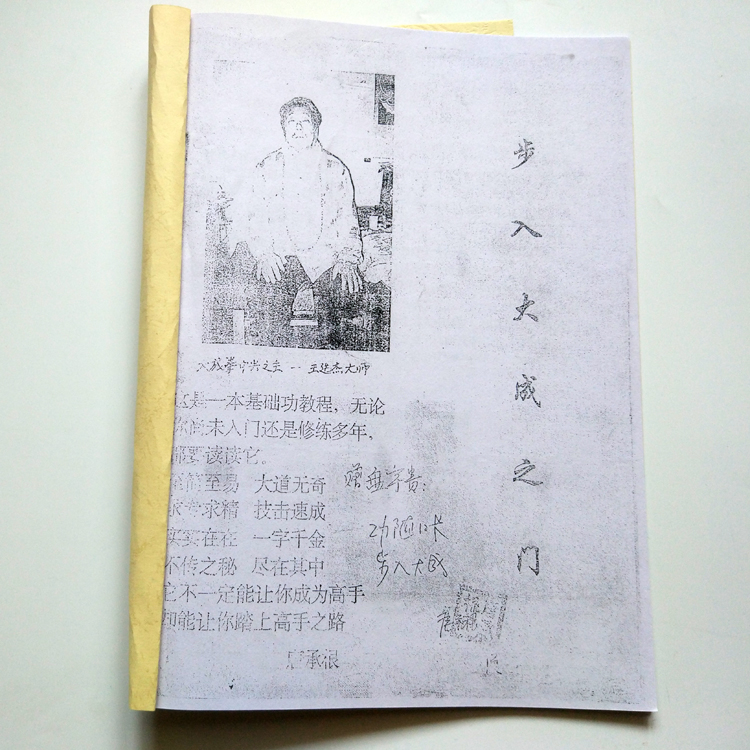 步入大成之门
大成拳中兴之主--王选杰大师
这是一本基础功教程，无论
你尚未入门还是修练多年，
都要读读它。
至简至易 大道无奇
求专求精 技击速成
实实在在 一字千金
不传之秘 尽在其中
它不一定能让你成为高手
却能让你踏上高手之路
赠盘
功随
步入大成